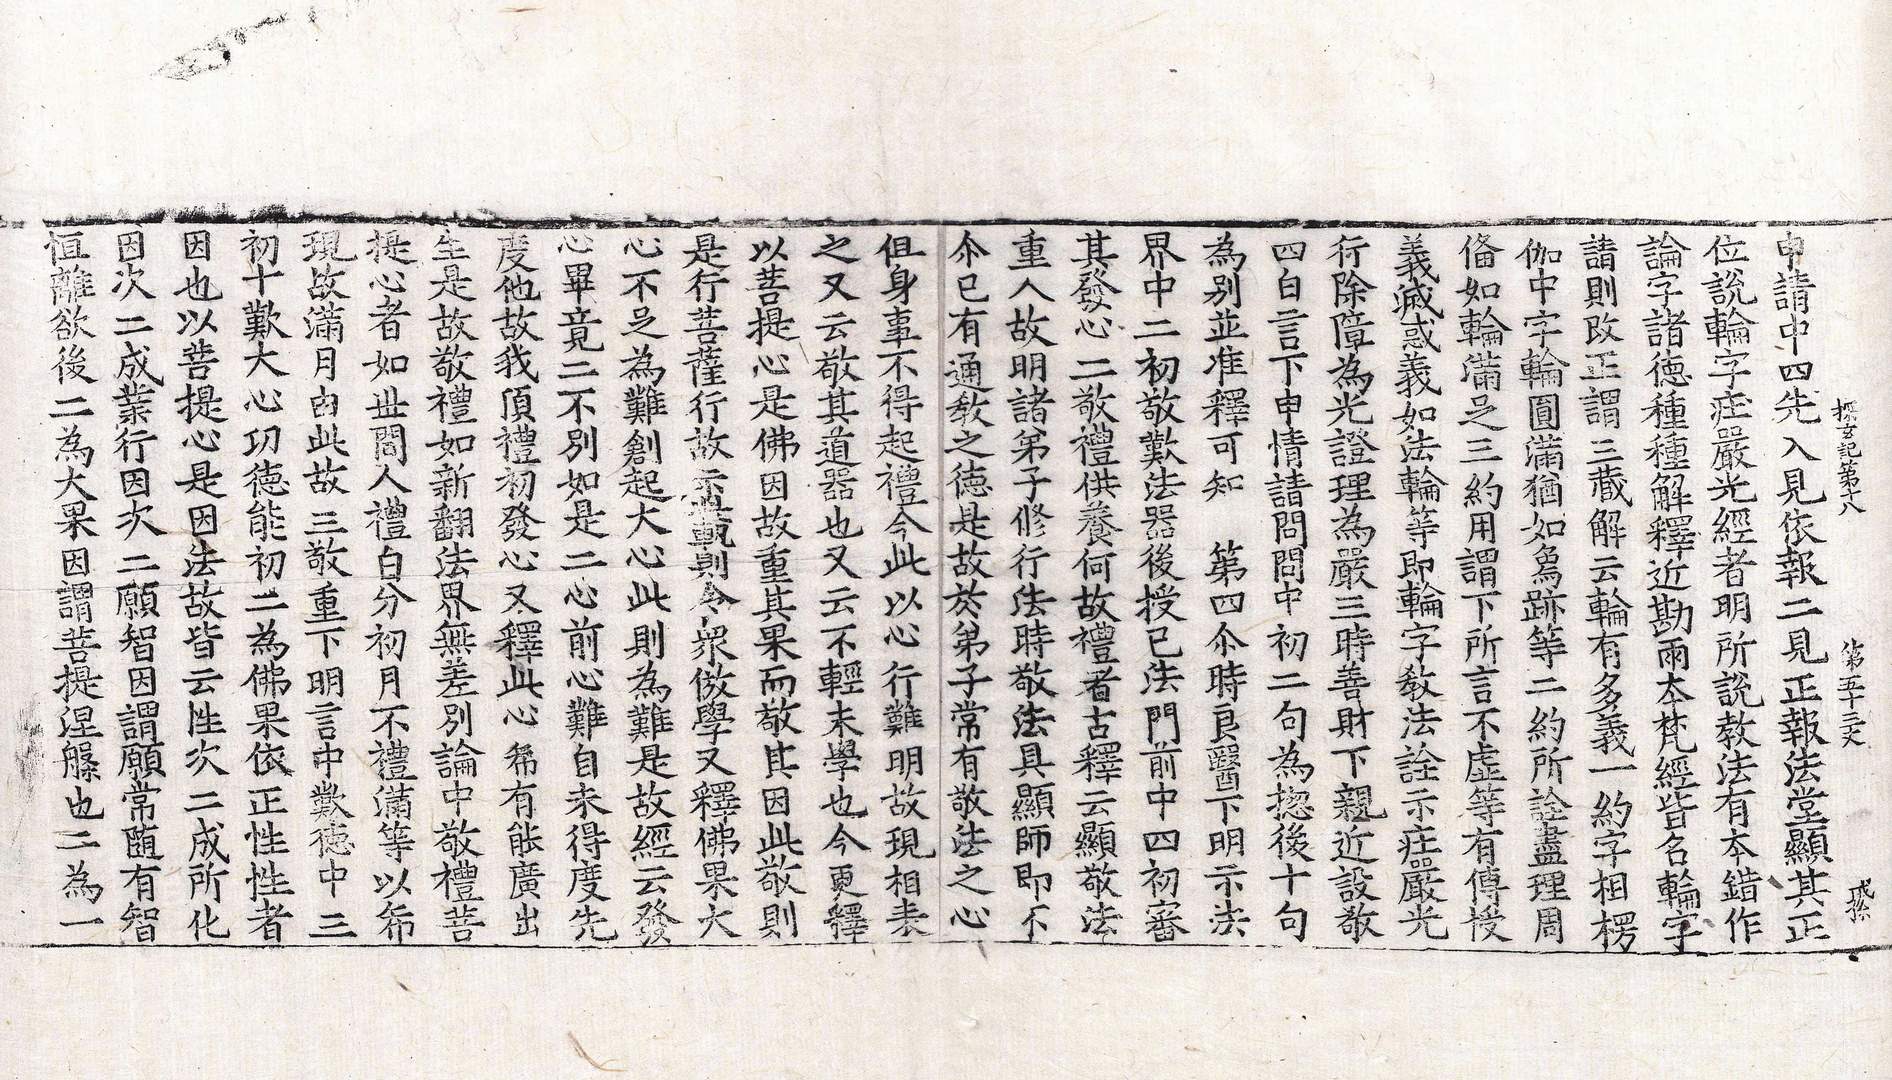 探玄記第十八　第五十三丈　戊捺
申請中四先入見依報二見正報法堂顯其正
位說輪字疰嚴光經者明所說教法有本錯作
論字諸德種種解釋近勘兩本梵經皆名輪字
請則改正謂三藏解云輪有多義一約字相楞
伽中字輪圓滿猶如鳥跡等二約所詮盡理周
俻如輪滿足三約用謂下所言不虛等有傳授
義滅惑義如法輪等即輪字教法詮示疰嚴光
行除障為光證理為嚴三時善財下親近設敬
四白言下申情請問問中初二句為揔後十句
為別並准釋可知　第四尒時良醫下明示法
界中二初敬歎法器後授已法門前中四初審
其發心二敬禮供養何故禮者古釋云顯敬法
重人故明諸弟子修行法時敬法具顯師即不
尒已有通教之德是故於弟子常有敬法之心
但身事不得起禮今此以心行難明故現相表
之又云敬其道器也又云不輕末學也今更釋
以菩提心是佛因故重其果而敬其因此敬則
是行菩薩行故示軌則令衆倣學又釋佛果大
心不足為難創起大心此則為難是故經云發
心畢竟二不別如是二心前心難自未得度先
度他故我頂禮初發心又釋此心希有能廣出
生是故敬禮如新翻法界無差別論中敬禮菩
提心者如世間人禮白分初月不禮滿等以希
現故滿月由此故三敬重下明言中歎德中三
初十歎大心功德能初二為佛果依正性性者
因也以菩提心是因法故皆云性次二成所化
因次二成業行因次二願智因謂願常隨有智
恒離欲後二為大果因謂菩提涅槃也二為一